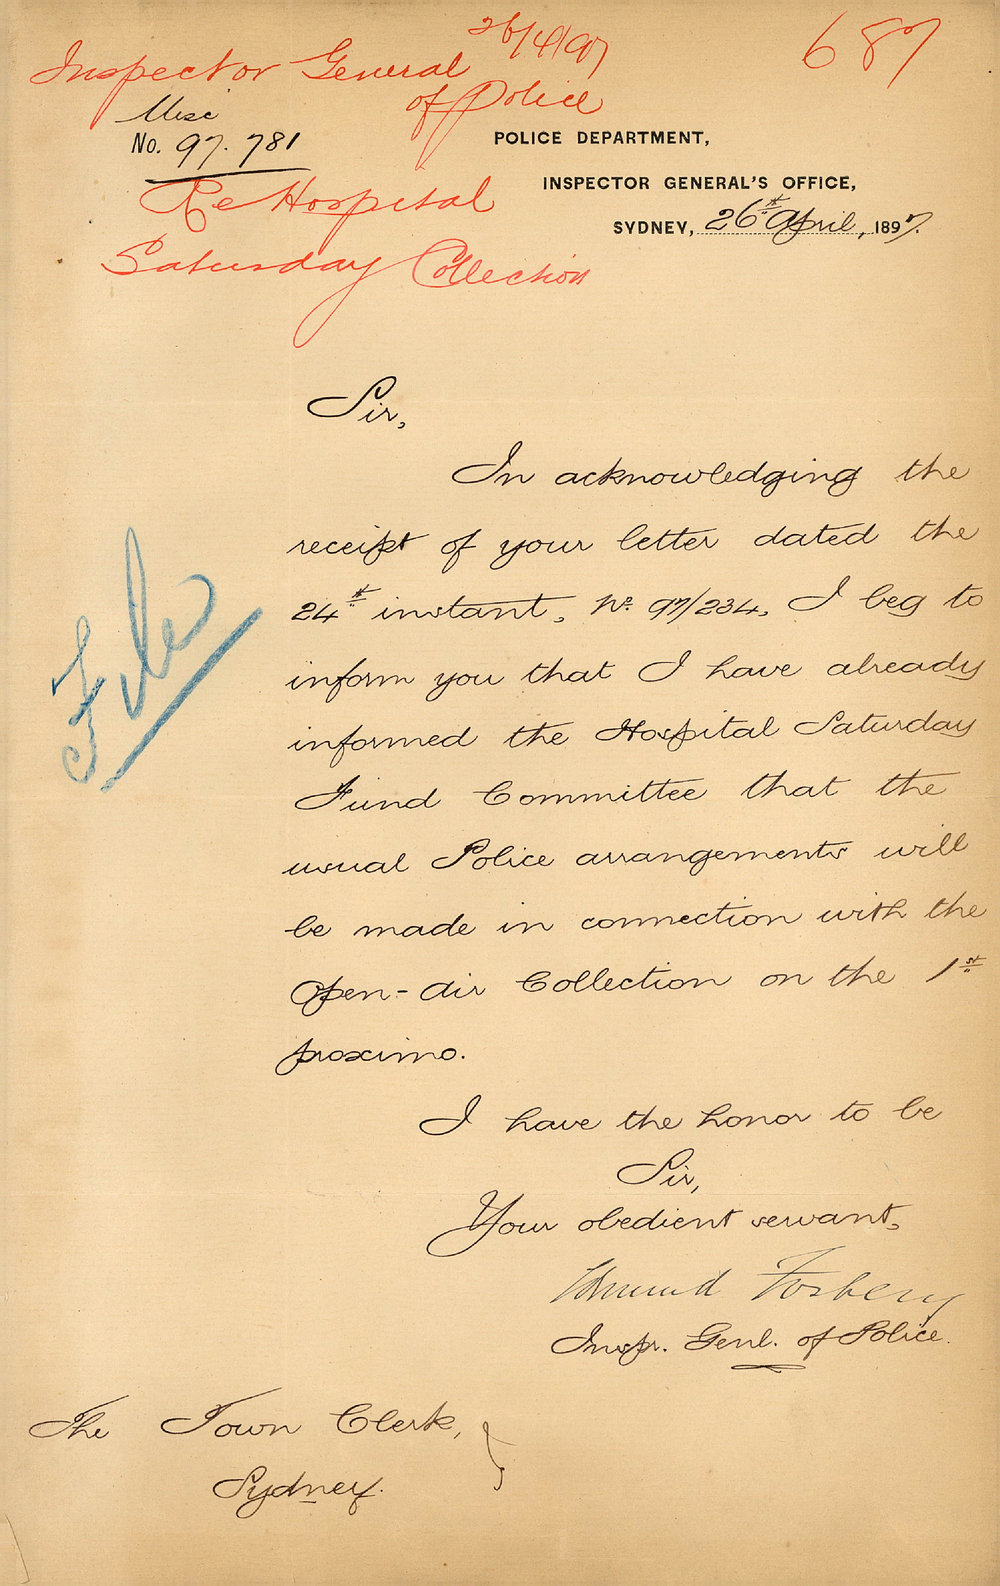 26/4/97
687
Inspector General
of Police
Misc
No. 97. 781
POLICE DEPARTMENT,
INSPECTOR GENERAL'S OFFICE,
SYDNEY, 26th April, 1897.
Re Hospital
Saturday Collection
File
Sir,
In acknowledging the
receipt of your letter dated the
24th instant, No. 97/234, I beg to
inform you that I have already
informed the Hospital Saturday
Fund Committee that the
usual Police arrangements will
be made in connection with the
Open-air Collection on the 1st
proximo.
I have the honor to be
Sir,
Your obedient servant,
Edmund Fosbery
Inspr. Genl. of Police.
The Town Clerk,
Sydney.